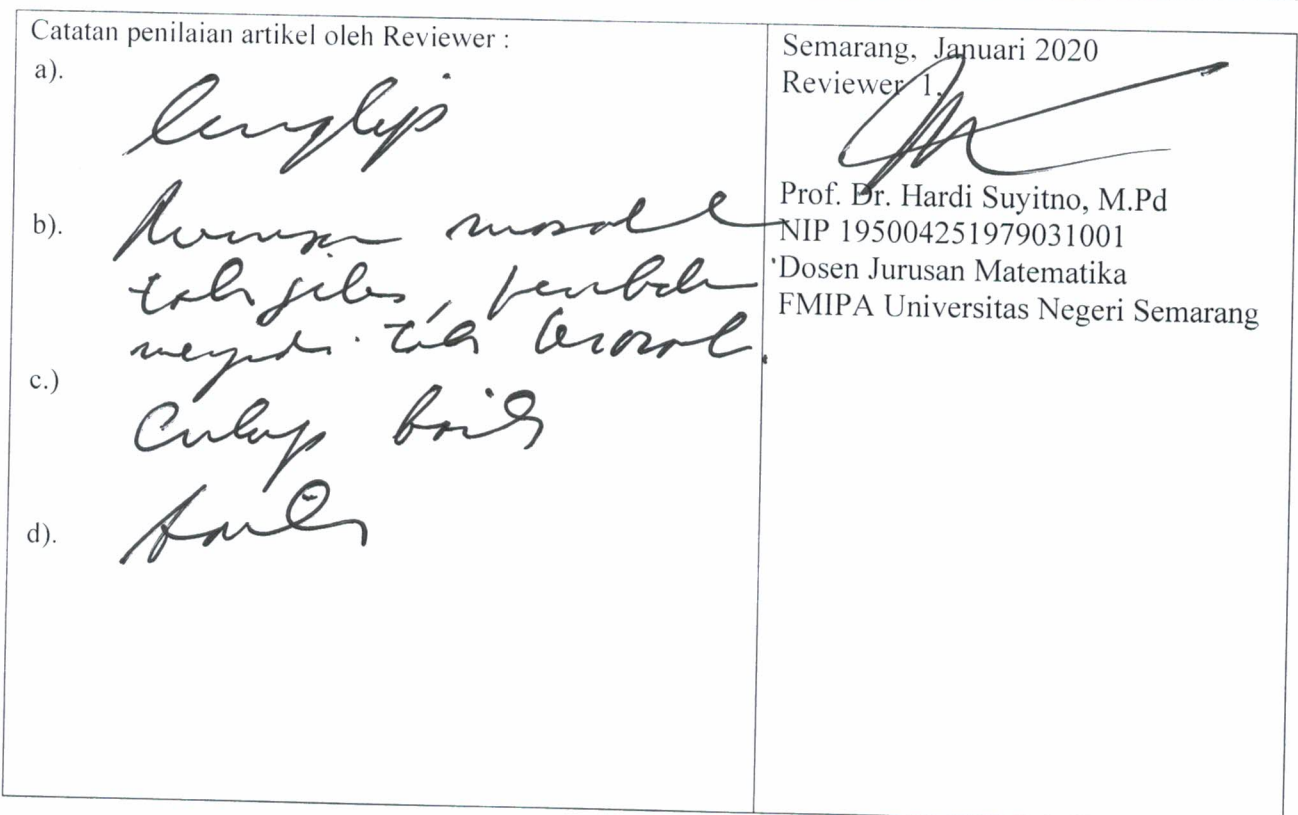 Catatan penilaian artikel oleh Reviewer :
a).
lengkap
b).
Rumusan masalah
tak jelas,
menjadi tak
c.)
Cukup baik
d).
baik
Semarang, Januari 2020
Reviewer 1,
Prof. Dr. Hardi Suyitno, M.Pd
NIP 195004251979031001
Dosen Jurusan Matematika
FMIPA Universitas Negeri Semarang